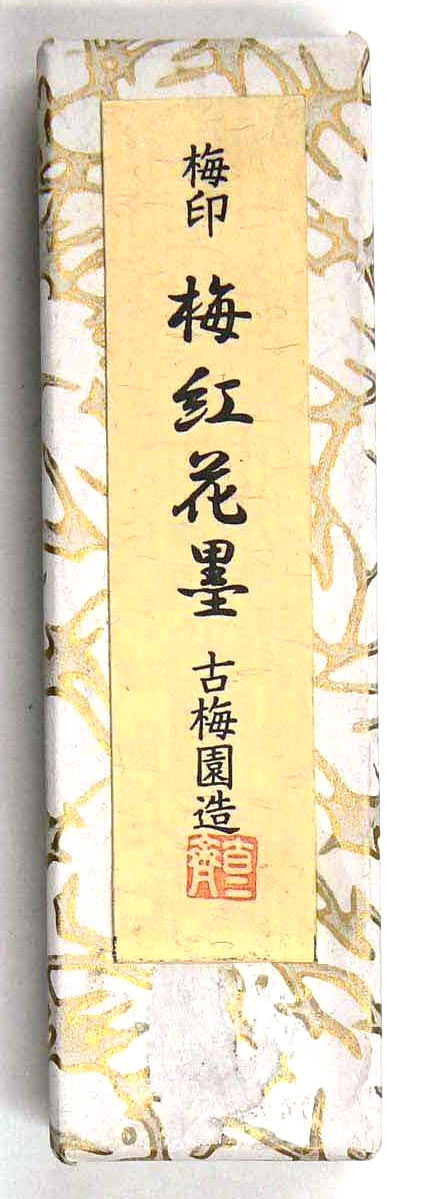 梅印
梅紅花墨
古梅園造